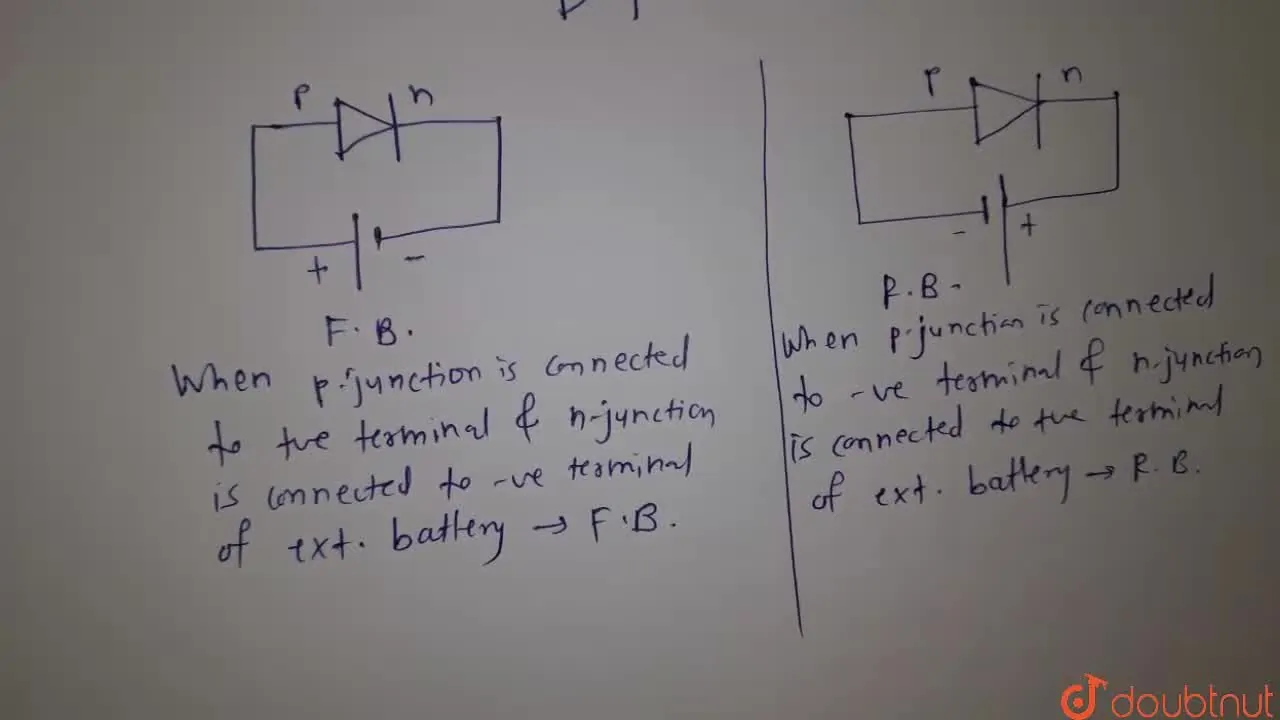 p n
+ -
F. B.
When p-junction is connected
to +ve terminal & n-junction
is connected to -ve terminal
of ext. battery → F.B.
p n
- +
R.B.
When p-junction is connected
to -ve terminal & n-junction
is connected to +ve terminal
of ext. battery → R.B.
doubtnut